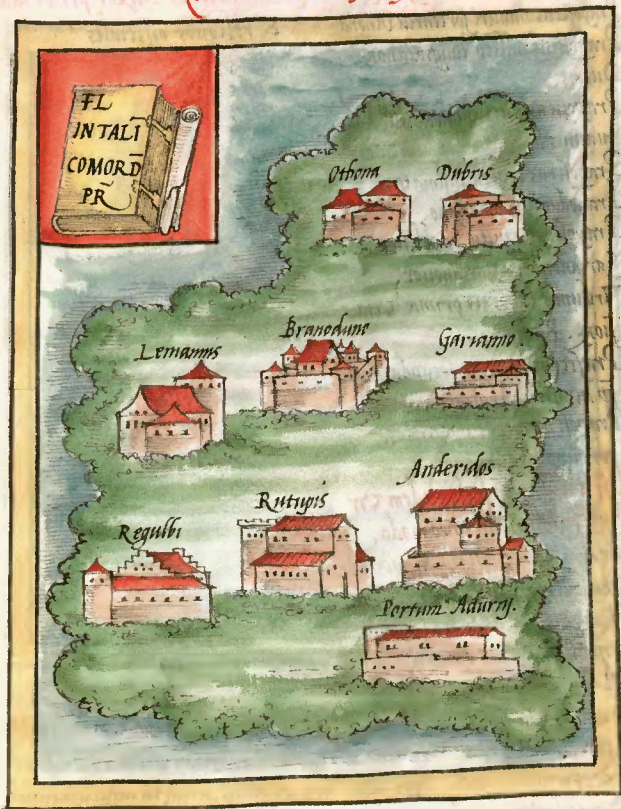 FL
INTALĪ
COMORD̄
PR̄
Othona
Dubris
Lemannis
Branoduno
Garianno
Regulbi
Rutupis
Anderidos
Portum Adurnj.